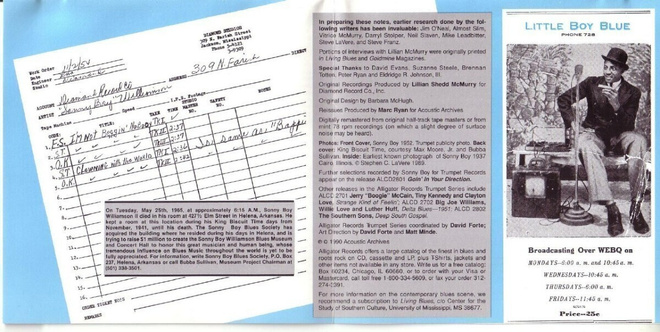 DIAMOND RECORD
309 N. Farish Street
Jackson, Mississippi
Work Order
Date 11/12/54
Engineer
Studio
ACCOUNT Diamond Record Co
ADDRESS 309 N. Farish
Sonny Boy Williamson
Tape Machine
I.P.S. Footage
CODE:
TITLE:
TAKE
TIME
NOTES
1. F.S. I'm Not Beggin' Nobody
Clowning with the World
On Tuesday, May 25th, 1965, at approximately 8:15 A.M., Sonny Boy
Williamson II died in his room at 427½ Elm Street in Helena, Arkansas. He
kept a room at this location during his King Biscuit Time days from
November, 1941, until his death. The Sonny Boy Blues Society has
acquired the building where he resided during his days in Helena, and is
trying to raise $1 million to create the Sonny Boy Williamson Blues Museum
and Concert Hall to honor this great musician and human being, whose
tremendous influence on Blues Music throughout the world is yet to be
fully appreciated. For information, write Sonny Boy Blues Society, P.O. Box
237, Helena, Arkansas or call Bubba Sullivan, Museum Project Chairman at
(501) 338-3501.
REMARKS
In preparing these notes, earlier research done by the fol-
lowing writers has been invaluable: Jim O'Neal, Almost Slim,
Vitrice McMurry, Darryl Stolper, Neil Slaven, Mike Leadbitter,
Steve LaVere, and Steve Franz.
Portions of interviews with Lillian McMurry were originally printed
in Living Blues and Goldmine Magazines.
Special Thanks to David Evans, Suzanne Steele, Brennan
Totten, Peter Ryan and Eldridge R. Johnson, III.
Original Recordings Produced by Lillian Shedd McMurry for
Diamond Record Co., Inc.
Original Design by Barbara McHugh.
Reissues Produced by Marc Ryan for Acoustic Archives
Digitally remastered from original half-track tape masters or from
mint 78 rpm recordings (on which a slight degree of surface
noise may be heard).
Photos: Front Cover, Sonny Boy 1952. Trumpet publicity photo. Back
cover: King Biscuit Time, courtesy Max Moore, Jr. and Bubba
Sullivan. Inside: Earliest known photograph of Sonny Boy 1937
Cairo, Illinois. © Stephen C. LaVere 1989.
Further selections recorded by Sonny Boy for Trumpet Records
appear on the release ALCD2801 Goin' In Your Direction.
Other releases in the Alligator Records Trumpet Series include
ALCD 2701 Jerry "Boogie" McCain, Tiny Kennedy and Clayton
Love, Strange Kind of Feelin'; ALCD 2702 Big Joe Williams,
Willie Love and Luther Huff, Delta Blues—1951; ALCD 2802
The Southern Sons, Deep South Gospel.
Alligator Records Trumpet Series coordinated by David Forte;
Art Direction by David Forte and Matt Minde.
© 1990 Acoustic Archives
Alligator Records offers a large catalog of the finest in blues and
roots rock on CD, cassette and LP, plus T-shirts, jackets and
other items not available in any store. Write us for a free catalog:
Box 60234, Chicago, IL 60660, or to order with your Visa or
Mastercard, call toll free 1-800-334-5609, or fax your order 312-
274-1391.
For more information on the contemporary blues scene, we
recommend a subscription to Living Blues, c/o Center for the
Study of Southern Culture, University of Mississippi, MS 38677.
LITTLE BOY BLUE
PHONE 728
Broadcasting Over WEBQ on
MONDAYS--6:00 a. m. and 10:45 a. m.
WEDNESDAYS--10:45 a. m.
THURSDAYS--6:00 a. m.
FRIDAYS--11:45 a. m.
Price--25c